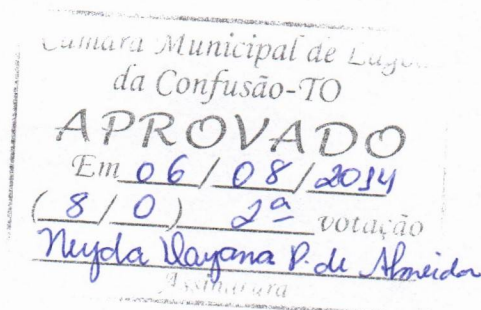 Câmara Municipal de Lagoa
da Confusão-TO
APROVADO
Em 06/08/2014
(8/0) 2ª votação
Neyda Dayana P. de Almeida
Assinatura